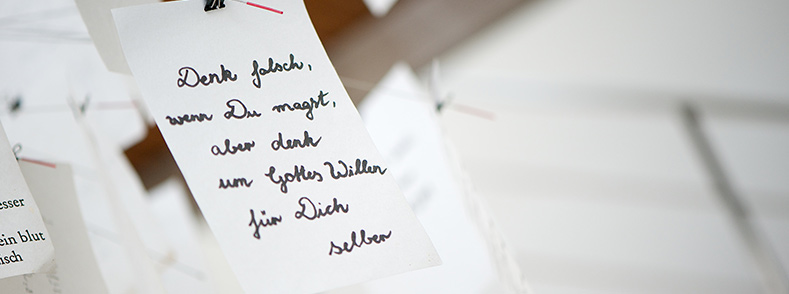 Denk falsch,
wenn Du magst,
aber denk
um Gottes Willen
für Dich
selber
esser
ein blut
nsch